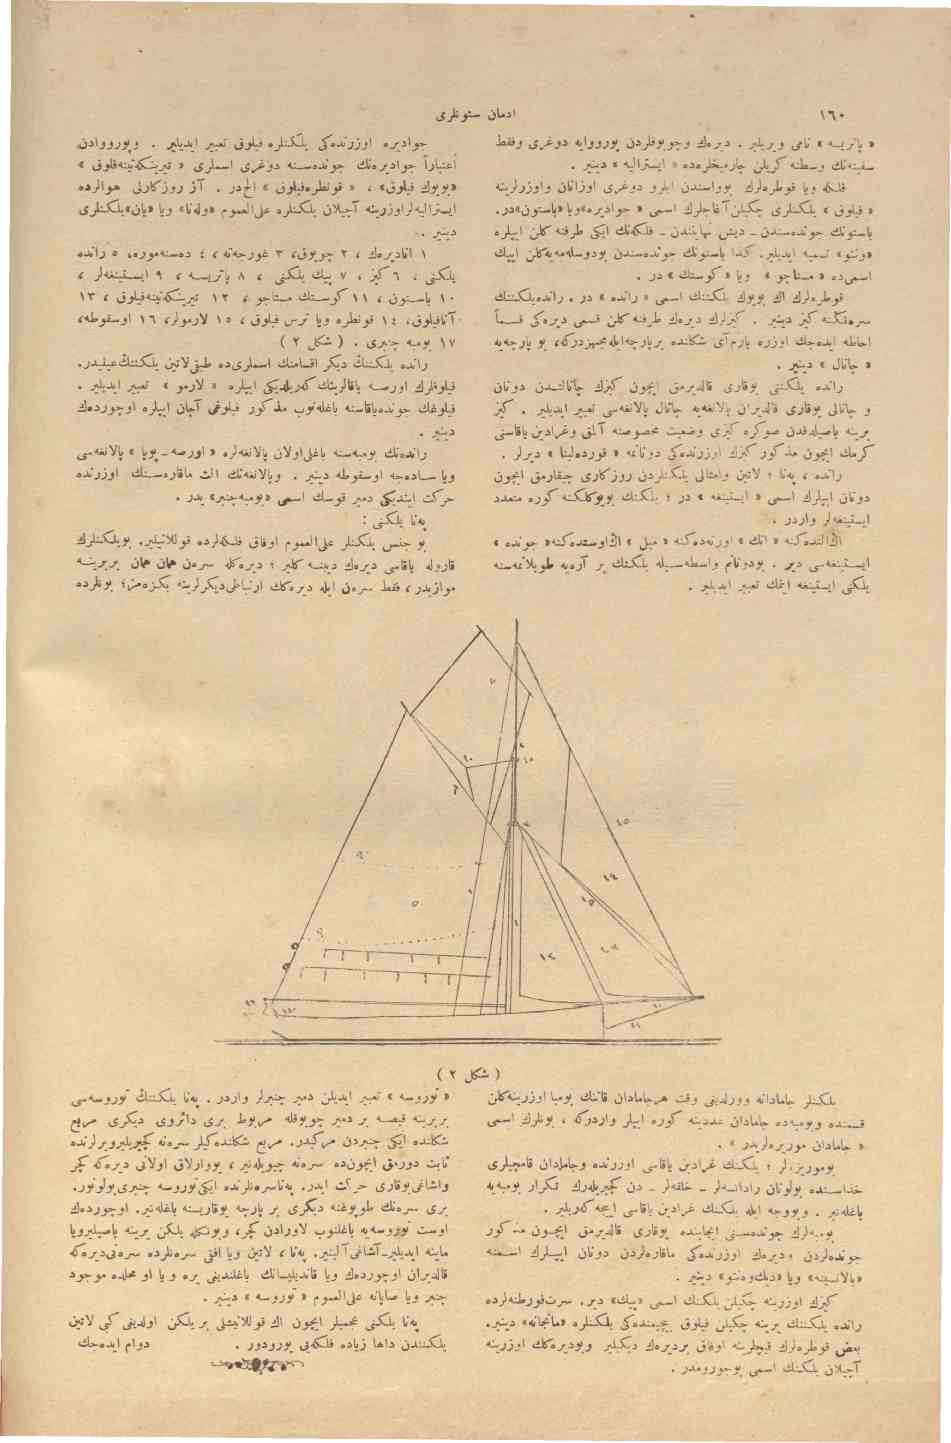 ١٦٠
ادمان سئونلری
« پاتریسه » نامی ویریلیر . دیرەك وچوبوقلردن پوروواﻳﻪ دوغری وفقط
سفینه‌نك وسطنه کریلن چارمیخلره‌ده « ایسترالیه » دینیر .
فلكه ویا قوطره‌لرك پوواسندن ایلرو دوغری اوزانان واوزرلرینه
« فیلوق » یلکنلری چکیلن آغاجلرك اسمی « جوادیره »ویا«باستون»در.
باستونك جونده‌سندن ـ دیش نهایتندن ـ فلكه‌نك ایکی طرفنه کلن ایپلره
«ونتو» تسمیه ایدیلیر. كذا باستونك جونده‌سندن بودوسلامه‌یه‌کلن ایپك
اسمی‌ده « مستاچو » ویا « کوستك » در .
قوطره‌لرك اك بویوك یلکننك اسمی « رانده » در . رانده‌یلکننك
سره‌نکنه کیز دینیر . کیزلرك دیرەك طرفنه کلن قسمی دیره‌کی قسماً
احاطه ایده‌جك اوزره یارم‌آی شکلنده برپارچه‌ایله‌مجهزدرکه، بو پارچه‌یه
« چاتال » دینیر .
رانده یلکننی یوقاری قالدیرمق ایچون کیزك چاتالندن دونان
و چاتالی یوقاری قالدیران پالانغه‌یه چاتال پالانغه‌سی تعبیر ایدیلیر . کیز
یرینه یاصیلدقدن صوکره کیزی وضعیت مخصوصنه آلمق وغرادین یاقاسنی
کرمك ایچون مذکور کیزك اوزرنده‌کی دونانمه « قوردەلیتا » دیرلر .
رانده ، په‌نا ؛ لاتین وامثالی یلکنلردن روزکاری چیقارمق ایچون
دونان ایپلرك اسمی « ایستینغه » در ؛ یلکنك بویوکلکنه کوره متعدد
ایستینغه‌لر واردر .
اك‌آلتده‌کنه « اتك » اورته‌ده‌کنه « میل » اك‌اوستده‌کنه« جونده »
ایستینغه‌سی دیر . بودونانم واسطه‌سیله یلکنك بر آره‌یه طوپلانمه‌سنه
یلکنی ایستینغه ایتمك تعبیر ایدیلیر .
جوادیره اوزرنده‌کی یلکنلره فیلوق تعبیر ایدیلیر . وپوروواﺩن
اعتباراً جوادیره‌نك جونده‌سنه دوغری اسملری « تیرینكه‌تینه‌فلوق »
«بویوك فیلوق» ، « قونطره‌فیلوق » الخ‌در . آز روزکارلی هوالرده
ایسترالیه‌لراوزرینه آچیلان یلکنلره علی‌العموم «وه‌لنا» ویا «یان»یلکنلری
دینیر .
١ آنادیرەك ، ٢ چوبوق، ٣ غورجه‌ته ، ٤ ده‌سته‌موره، ٥ رانده
یلکنی ، ٦ کیز ، ٧ پیك یلکنی ، ٨ پاتریسه ، ٩ ایستینغه‌لر ،
١٠ باستون ، ١١ کوستك مستاچو ، ١٢ تیرینكه‌تینه‌فیلوق ، ١٣
آنافیلوق، ١٤ قونطره ویا ترس فیلوق ، ١٥ لارمولر، ١٦ اوسقوطه،
١٧ بومبه چنبری . ( شكل ٢ )
رانده یلکننك دیکر اقسامنك اسملری‌ده طبق‌لاتین یلکننك‌عینیدر.
فیلوقلرك اورسه یاقالرینك که‌ریلدیکی ایپلره « لارمو » تعبیر ایدیلیر .
فیلوغك جونده‌یاقاسنه باغلەنوب مذکور فیلوغی آچان ایپلره اوچورده‌ك
دینیر .
رانده‌نك بومبه‌سنه باغلی‌اولان پالانغه‌لره « اورسه ـ پوپا » پالانغه‌سی
ویا ساده‌جه اوسقوطه دینیر . وپالانغه‌نك الت ماقاره‌سنك اوزرنده
حرکت ایتدیکی دمیر قوسك اسمی «بومبه‌چنبر» یدر .
په‌نا یلکنی :
بو جنس یلکنلر علی‌العموم اوفاق فلکه‌لرده قوللانیلیر. بویلکنلرك
قاروله یاقاسی دیرەك دیبنه کلیر ؛ دیره‌کله سره‌ن همان همان بربرینه
موازیدر ، فقط سره‌ن ایله دیره‌کك ارتباطی‌دیکرلرینه بکزەمز؛ بونلرده
( شكل ٢ )
یلکنلر جامادانه وورلدیغی وقت هرجامادان قاتنك بومبا اوزرینه‌کلن
قسمنده وبومبه‌ده جامادان عددینه کوره ایپلر واردرکه ، بونلرك اسمی
« جامادان موریزه‌لریدر » .
بوموریزه‌لر ؛ یلکنك غرادین یاقاسی اوزرنده وجامادان قامچیلری
حذاسنده بولونان رادانسه‌لر ـ خلقه‌لر ـ دن کچیریلەرك تکرار بومبه‌یه
باغلەنیر . وبووجه ایله یلکنك غرادین یاقاسی ایجه که‌ریلیر .
بومبه‌لرك جونده‌سنی ایجابنده یوقاری قالدیرمق ایچون مذکور
جونده‌لردن ودیرەك اوزرنده‌کی ماقاره‌لردن دونان ایپلرك اسمنه
«بالانسینه» ویا «دیك‌وه‌نتو» دینیر .
کیزك اوزرینه چکیلن یلکنك اسمی «پیك» دیر. سرت‌فورطنه‌لرده
رانده یلکننك یرینه چکیلن فیلوق بیچیمنده‌کی یلکنلره «مانجانا» دینیر.
بعض قوطره‌لرك قیچلرینه اوفاق بردیرەك دیکیلیر وبودیره‌کك اوزرینه
آچیلان یلکنك اسمی بوجورومدر .
« توروسه » تعبیر ایدیلن دمیر چنبرلر واردر . په‌نا یلکننك توروسه‌سی
بربرینه قیصه بر دمیر چوبوقله مربوط بری دائروی دیکری مربع
شکلنده ایکی چنبردن مرکبدر. مربع شکلنده‌کیلر سره‌نه کچیریلیرویرلرنده
ثابت دورمق ایچون‌ده سره‌نه چیویلەنیر ، یووارلاق اولانی دیره‌که کچر
واشاغی‌یوقاری حرکت ایدر. په‌ناسره‌نلرنده ایکی‌توروسه چنبری‌بولونور.
بری سره‌نك طوپوغنه دیکری بر پارچه یوقاریسنه باغلەنیر. اوچورده‌ك
اوست توروسه‌یه باغلنوب لاوراﺩن کچر، وبونکله یلکن یرینه یاصیلیرویا
ماینه ایدیلیر-آشاغی‌آلینیر. په‌نا ، لاتین ویا افقی سره‌نلرده سره‌نی‌دیره‌که
قالدیران اوچورده‌ك ویا قاندیلیسانك باغلندیغی یره ویا او محلده موجود
چنبر ویا صاپانه علی‌العموم « توروسه » دینیر .
په‌نا یلکنی عجمیلر ایچون اك قوللانیشلی بریلکن اولدیغی کبی لاتین
یلکنندن داها زیاده فلکه‌یی یورودور .
دوام ایده‌جك